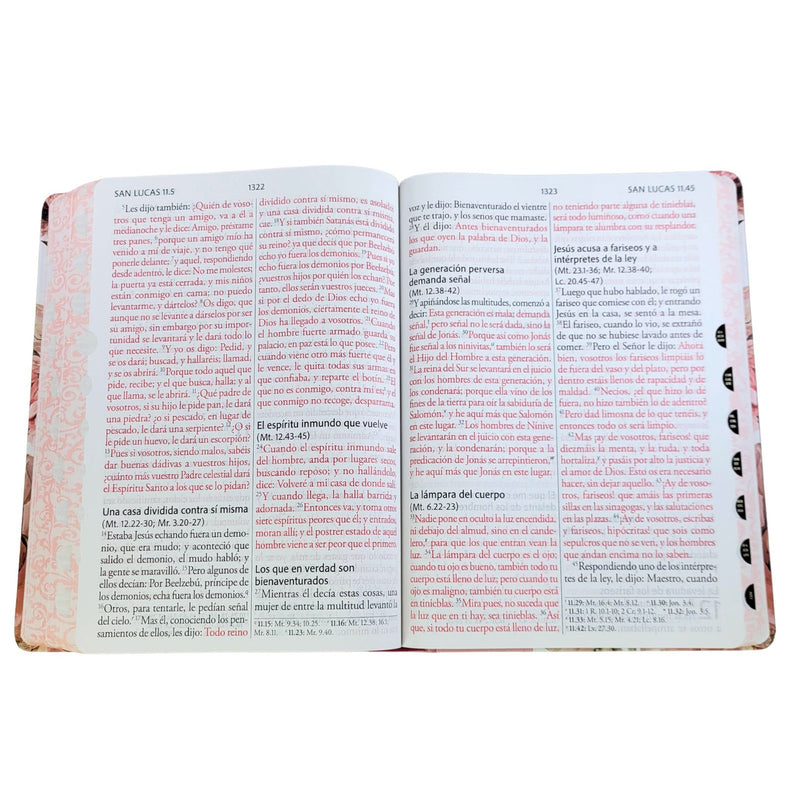 SAN LUCAS 11.5
1322
⁵Les dijo también: ¿Quién de voso-
tros que tenga un amigo, va a él a
medianoche y le dice: Amigo, préstame
tres panes, ⁶porque un amigo mío ha
venido a mí de viaje, y no tengo qué
ponerle delante; ⁷y aquel, respondiendo
desde adentro, le dice: No me molestes;
la puerta ya está cerrada, y mis niños
están conmigo en cama; no puedo
levantarme, y dártelos? ⁸Os digo, que
aunque no se levante a dárselos por ser
su amigo, sin embargo por su importu-
nidad se levantará y le dará todo lo
que necesite. ⁹Y yo os digo: Pedid, y
se os dará; buscad, y hallaréis; llamad,
y se os abrirá. ¹⁰Porque todo aquel que
pide, recibe; y el que busca, halla; y al
que llama, se le abrirá. ¹¹¿Qué padre de
vosotros, si su hijo le pide pan, le dará
una piedra? ¿o si pescado, en lugar de
pescado, le dará una serpiente? ¹²¿O si
le pide un huevo, le dará un escorpión?
¹³Pues si vosotros, siendo malos, sabéis
dar buenas dádivas a vuestros hijos,
¿cuánto más vuestro Padre celestial dará
el Espíritu Santo a los que se lo pidan?
Una casa dividida contra sí misma
(Mt. 12.22-30; Mr. 3.20-27)
¹⁴Estaba Jesús echando fuera un demo-
nio, que era mudo; y aconteció que
salido el demonio, el mudo habló; y
la gente se maravilló. ¹⁵Pero algunos de
ellos decían: Por Beelzebú, príncipe de
los demonios, echa fuera los demonios.
¹⁶Otros, para tentarle, le pedían señal
del cielo. ¹⁷Mas él, conociendo los pen-
samientos de ellos, les dijo: Todo reino
dividido contra sí mismo, es asolado;
y una casa dividida contra sí misma,
¹⁸Y si también Satanás está dividido
contra sí mismo, ¿cómo permanecerá
su reino? ya que decís que por Beelzebú
echo yo fuera los demonios. ¹⁹Pues si yo
echo fuera los demonios por Beelzebú,
¿vuestros hijos por quién los echan? Por
tanto, ellos serán vuestros jueces. ²⁰Mas
si por el dedo de Dios echo yo fuera
los demonios, ciertamente el reino de
Dios ha llegado a vosotros. ²¹Cuando
el hombre fuerte armado guarda su
palacio, en paz está lo que posee. ²²Pero
cuando viene otro más fuerte que él y
le vence, le quita todas sus armas en
que confiaba, y reparte el botín. ²³El que
no es conmigo, contra mí es; y el
que conmigo no recoge, desparrama.
El espíritu inmundo que vuelve
(Mt. 12.43-45)
²⁴Cuando el espíritu inmundo sale
del hombre, anda por lugares secos,
buscando reposo; y no hallándolo,
dice: Volveré a mi casa de donde salí.
²⁵Y cuando llega, la halla barrida y
adornada. ²⁶Entonces va, y toma otros
siete espíritus peores que él; y entrados,
moran allí; y el postrer estado de aquel
hombre viene a ser peor que el primero.
Los que en verdad son
bienaventurados
²⁷Mientras él decía estas cosas, una
mujer de entre la multitud levantó la
11.15: Mr. 9.34; 10.25. 11.16: Mt. 12.38; 16.1.
Mr. 8.11. 11.23: Mr. 9.40.
1323
SAN LUCAS 11.45
voz y le dijo: Bienaventurado el vientre
que te trajo, y los senos que mamaste.
²⁸Y él dijo: Antes bienaventurados
los que oyen la palabra de Dios, y la
guardan.
La generación perversa
demanda señal
(Mt. 12.38-42)
²⁹Y apiñándose las multitudes, comenzó a
decir: Esta generación es mala; demanda
señal, pero señal no le será dada, sino la
señal de Jonás. ³⁰Porque así como Jonás
fue señal a los ninivitas, también lo será
el Hijo del Hombre a esta generación.
³¹La reina del Sur se levantará en el juicio
con los hombres de esta generación, y
los condenará; porque ella vino de los
fines de la tierra para oír la sabiduría de
Salomón, y he aquí más que Salomón
en este lugar. ³²Los hombres de Nínive
se levantarán en el juicio con esta gene-
ración, y la condenarán; porque a la
predicación de Jonás se arrepintieron,
y he aquí más que Jonás en este lugar.
La lámpara del cuerpo
(Mt. 6.22-23)
³³Nadie pone en oculto la luz encendida,
ni debajo del almud, sino en el cande-
lero, para que los que entran vean la luz.
³⁴La lámpara del cuerpo es el ojo; cuando
tu ojo es bueno, también todo tu cuerpo
está lleno de luz; pero cuando tu ojo es
maligno, también tu cuerpo está en
tinieblas. ³⁵Mira pues, no suceda que
la luz que en ti hay, sea tinieblas. ³⁶Así
que, si todo tu cuerpo está lleno de luz,
no teniendo parte alguna de tinieblas,
será todo luminoso, como cuando una
lámpara te alumbra con su resplandor.
Jesús acusa a fariseos y a
intérpretes de la ley
(Mt. 23.1-36; Mr. 12.38-40;
Lc. 20.45-47)
³⁷Luego que hubo hablado, le rogó un
fariseo que comiese con él; y entrando
Jesús en la casa, se sentó a la mesa.
³⁸El fariseo, cuando lo vio, se extrañó
de que no se hubiese lavado antes de
comer. ³⁹Pero el Señor le dijo: Ahora
bien, vosotros los fariseos limpiáis lo
de fuera del vaso y del plato, pero por
dentro estáis llenos de rapacidad y de
maldad. ⁴⁰Necios, ¿el que hizo lo
de fuera, no hizo también lo de adentro?
⁴¹Pero dad limosna de lo que tenéis, y
entonces todo os será limpio.
⁴²Mas ¡ay de vosotros, fariseos! que
diezmáis la menta, y la ruda, y toda
hortaliza, y pasáis por alto la justicia y
el amor de Dios. Esto os era necesario
hacer, sin dejar aquello. ⁴³¡Ay de voso-
tros, fariseos! que amáis las primeras
sillas en las sinagogas, y las salutaciones
en las plazas. ⁴⁴¡Ay de vosotros, escribas
y fariseos, hipócritas! que sois como
sepulcros que no se ven, y los hombres
que andan encima no lo saben.
⁴⁵Respondiendo uno de los intérpre-
tes de la ley, le dijo: Maestro, cuando
11.29: Mt. 16.4; Mr. 8.12. 11.30: Jon. 3.4.
11.31: 1 R. 10.1-10; 2 Cr. 9.1-12. 11.32: Jon. 3.5.
11.33: Mt. 5.15; Mr. 4.21; Lc. 8.16.
11.42: Lv. 27.30.